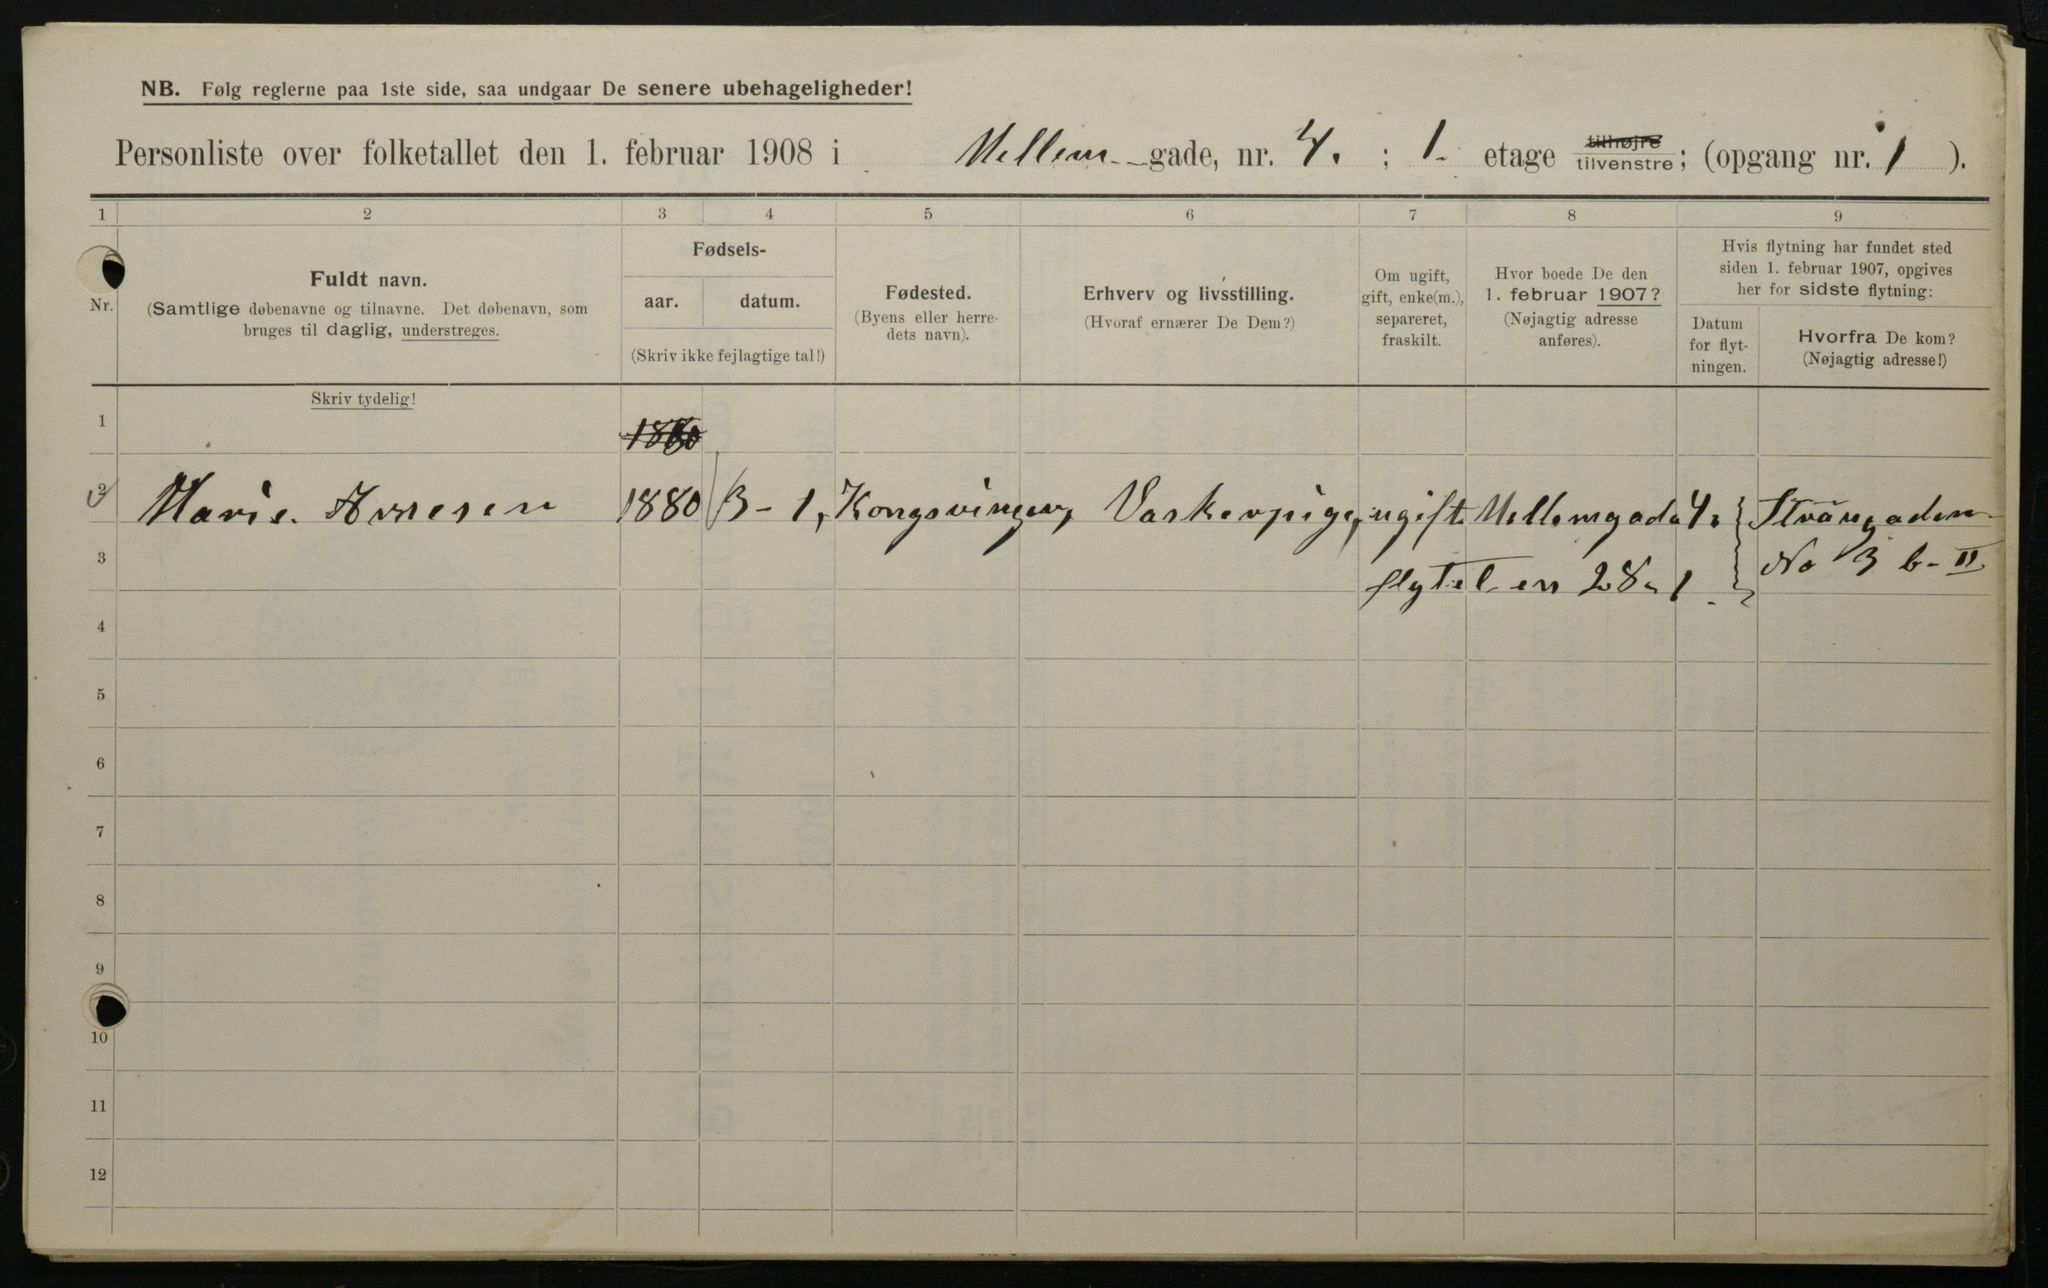 NB. Følg reglerne paa 1ste side, saa undgaar De senere ubehageligheder!
Personliste over folketallet den 1. februar 1908 i Mellem-gade, nr. 4. ; 1. etage tilhøjre tilvenstre; (opgang nr. 1 ).
1 2 3 4 5 6 7 8 9
Nr.
Fuldt navn.
(Samtlige døbenavne og tilnavne. Det døbenavn, som
bruges til daglig, understreges.
Fødsels-
aar. datum.
(Skriv ikke fejlagtige tal!)
Fødested.
(Byens eller herre-
dets navn).
Erhverv og livsstilling.
(Hvoraf ernærer De Dem?)
Om ugift,
gift, enke(m.),
separeret,
fraskilt.
Hvor boede De den
1. februar 1907?
(Nøjagtig adresse
anføres).
Hvis flytning har fundet sted
siden 1. februar 1907, opgives
her for sidste flytning:
Datum
for flyt-
ningen.
Hvorfra De kom?
(Nøjagtig adresse!)
Skriv tydelig!
1 1880
2 Marie 1880 13-1, Kongsvinger, Vaskerpige, ugift Mellemgada 4.
3 flytet en 28-1 No 3 b-II
4
5
6
7
8
9
10
11
12